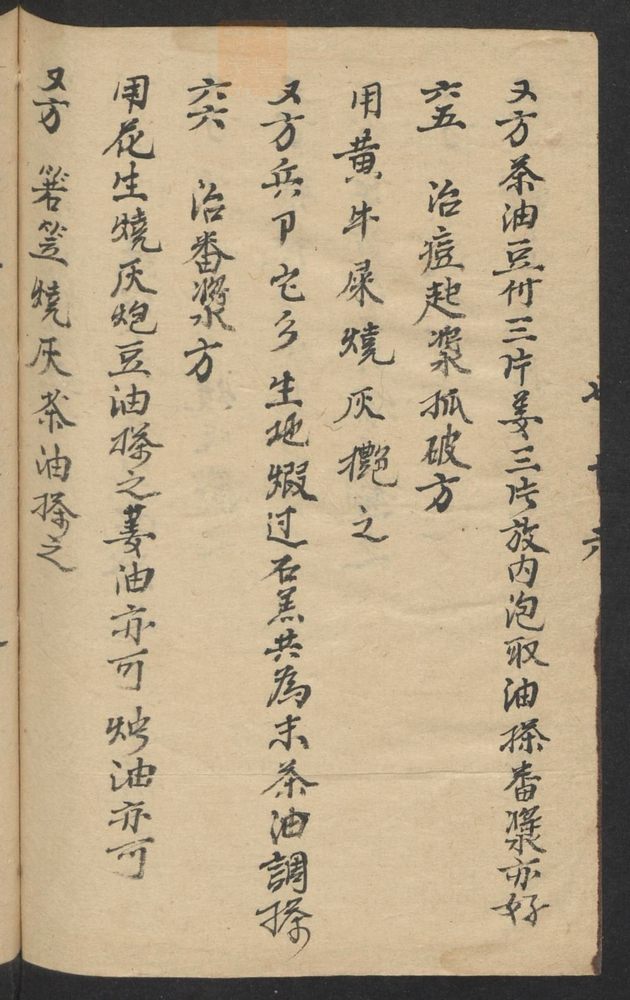 又方茶油豆付三片姜三片放内泡取油搽番漿亦好
六五 治痘起漿抓破方
用黄牛屎燒灰摠之
又方兵卩它多生地煅过石羔共為末茶油調搽
六六 治番漿方
用花生燒灰炮豆油搽之姜油亦可 油亦可
又方 箬笠燒灰茶油搽之